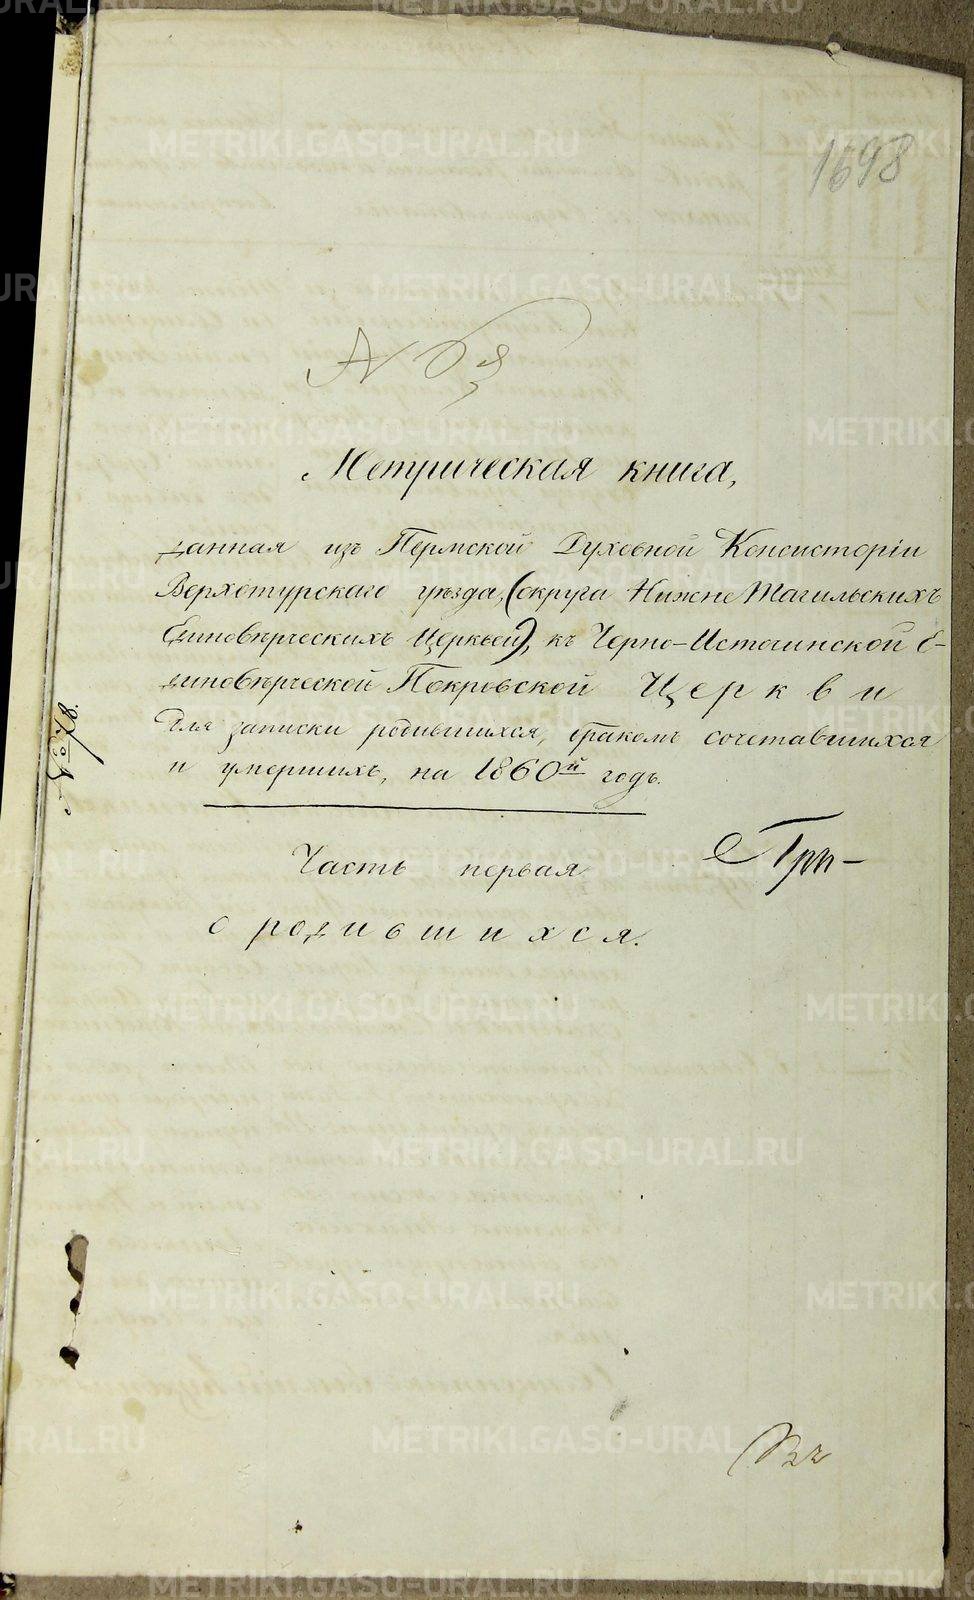 1698
Метрическая книга,
данная изъ Пермской Духовной Консисторіи
Верхотурскаго уѣзда, (округа Нижне Тагильскихъ
Единовѣрческихъ Церквей), къ Черно-Источинской Е-
диновѣрческой Покровской Церкви
для записки родившихся, бракомъ сочетавшихся
и умершихъ, на 1860й годъ.
Часть первая
о родившихся.
№ 78.
METRIKI.GASO-URAL.RU